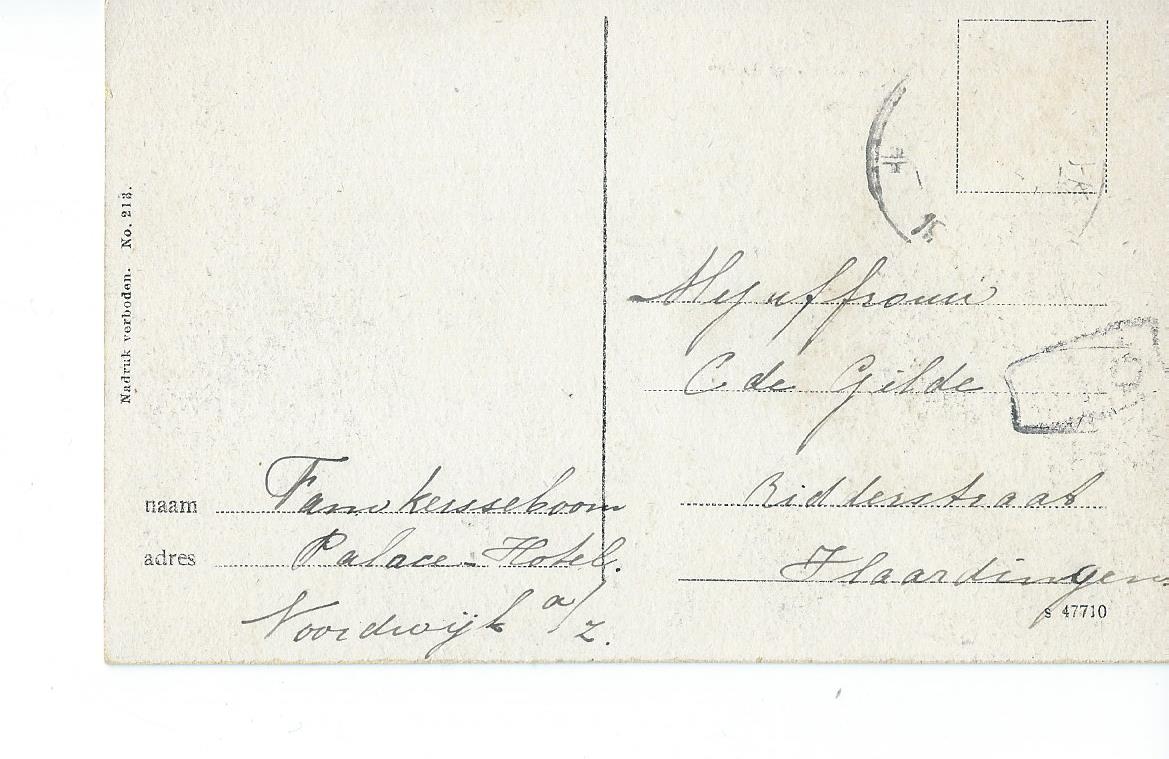 Nadruk verboden. No. 213.
naam Fam Kersseboom
adres Palace-Hotel.
Noordwijk a/z.
Mejuffrouw
C de Gilde
Ridderstraat
Vlaardingen
S 47710